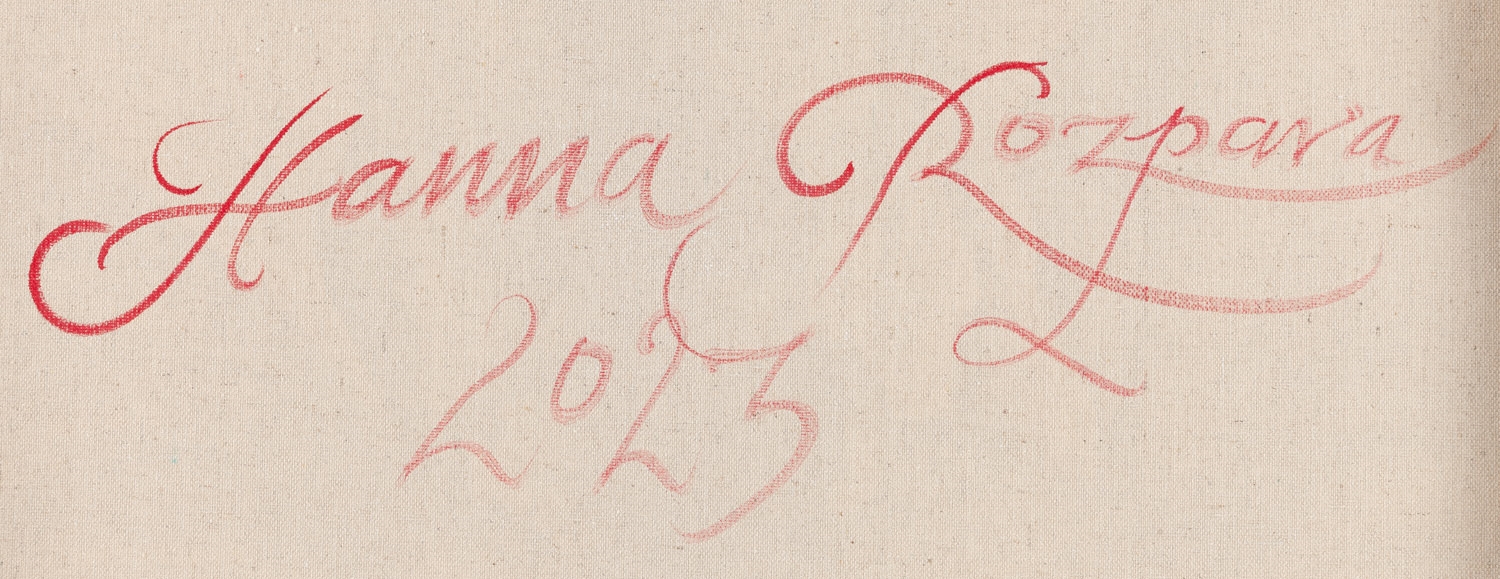 Hanna Rozpara
2023